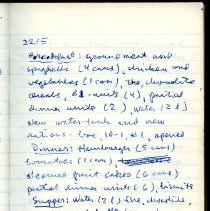 22/5
Breakfast: ground meat and
spaghetti (4 cans), chicken and
vegetables (1 can), tea, chocolate
cereals, B1-units (4), partial
dinner units (2), water (2 l)
New water-tank and new
rations-box, 10-1, #1, opened
Dinner: Hamburger (5 cans)
tomatoes (1 can),
canned fruit cakes (6 cans)
partial dinner units (6), biscuits
Supper: Water (2 l), tea, chocolate,